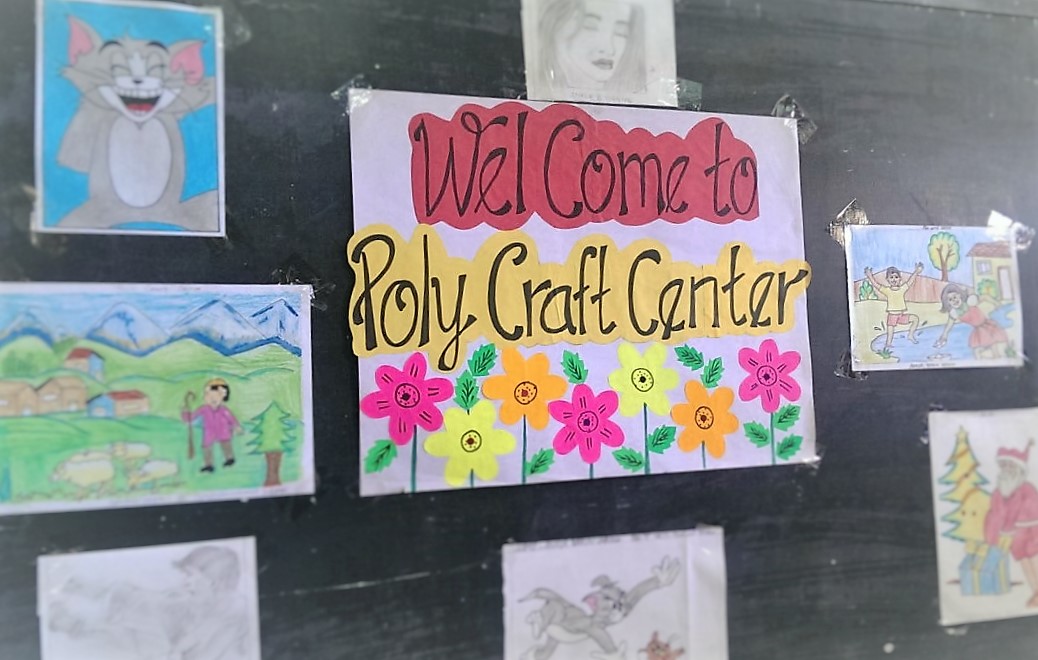 Wel Come to
Poly Craft Center